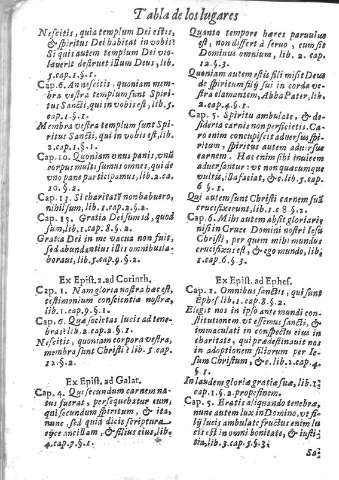 Tabla de los lugares
Nescitis, quia templum Dei estis,
& spiritus Dei habitat in vobis?
Si quis autem templum Dei vio-
lauerit destruet illum Deus, lib.
5. cap. 1. §. 1.
Cap. 6. An nescitis, quoniam mem-
bra vestra templum sunt Spiri-
tus Sancti, qui in vobis est, lib. 5.
cap. 1. §. 1.
Membra vestra templum sunt Spi-
ritus Sancti, qui in vobis est, lib.
2. cap. 1. §. 1.
Cap. 10. Quoniam vnus panis, vnũ
corpus multi sumus omnes, qui de
vno pane participamus, lib. 2. ca.
10. §. 2.
Cap. 13. Si charitatẽ non habuero,
nihil sum, lib. 1. cap. 2. §. 1.
Cap. 15. Gratia Dei sum id, quod
sum, lib. 1. cap. 8. §. 2.
Gratia Dei in me vacua non fuit,
sed abundantius illis omnibus la-
boraui, lib. 5. cap. 9. §. 2.
Ex Epist. 2. ad Corinth.
Cap. 1. Nam gloria nostra hæc est,
testimonium conscientiæ nostræ,
lib. 1. cap. 9. §. 1.
Cap. 6. Quæ societas lucis ad tene-
bras? lib. 2. cap. 2. §. 1.
Nescitis, quoniam corpora vestra,
membra sunt Christi? lib. 5. cap.
12. §. 2.
Ex Epist. ad Galat.
Cap. 4. Qui secundum carnem na-
tus fuerat, persequebatur eum,
qui secundum spiritum, & ita,
nunc, sed quid dicit scriptura
eyce ancillam, & filius eius, lib.
4. cap. 7. §. 1.
Quanto tempore hæres paruulus
est, non differt à seruo, cum sit
Dominus omnium, lib. 2. cap.
12. §. 3.
Quoniam autem estis filij misit Deus
spiritum filij sui in corda ve-
stra clamantem, Abba Pater, lib.
2. cap. 4. §. 1.
Cap. 5. Spiritu ambulate, & de-
sideria carnis non perficietis. Ca-
ro enim concupiscit aduersus spi-
ritum, spiritus autem aduersus
carnem. Hæc enim sibi inuicem
aduersantur: vt non quæcunque
vultis, illa faciat, & c. lib. 5. cap.
6 §. 1.
Qui autem sunt Christi carnem suã
crucifixerunt, lib. 1. c 8 §. 2.
Cap. 6. Mihi autem absit gloriari,
nisi in Cruce Domini nostri Iesu
Christi, per quem mihi mundus
crucifixus est, & ego mundo, lib.
5. cap. 6 §. 3.
Ex Epist. ad Ephes.
Cap. 1. Omnibus sanctis, qui sunt
Ephesi lib. 1. cap. 8. §. 2.
Elegit nos in ipso ante mundi con-
stitutionem vt essemus sancti, &
immaculati in conspectu eius in
charitate, qui prædestinauit nos
in adoptionem filiorum per Ie-
sum Christum, & c. lib. 2. cap. 4.
§. 1.
In laudem gloriæ gratiæ suæ, lib. 1.
cap. 1. §. 2. prope finem.
Cap. 5. Eratis aliquando tenebræ,
nunc autem lux in Domino, vt fi-
lij lucis ambulate fructus enim lu-
cis est in omni bonitate, & iusti-
tia, lib. 3. cap. 5. §. 3.